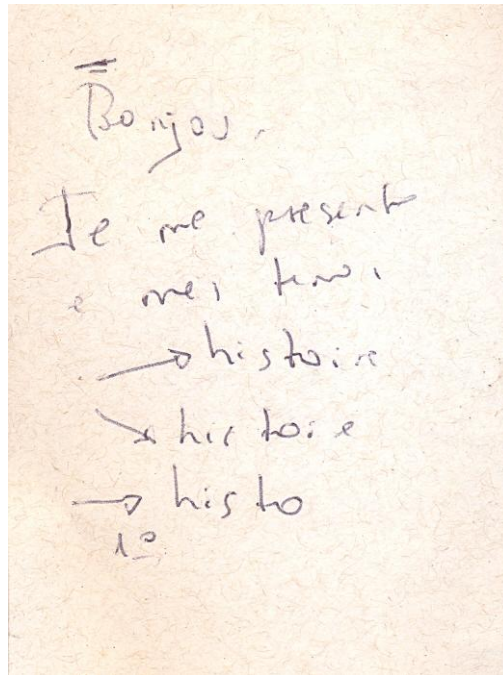 Bonjou.
Je me presente
e mei
→ histoire
↘ histoire
→ histo
1º